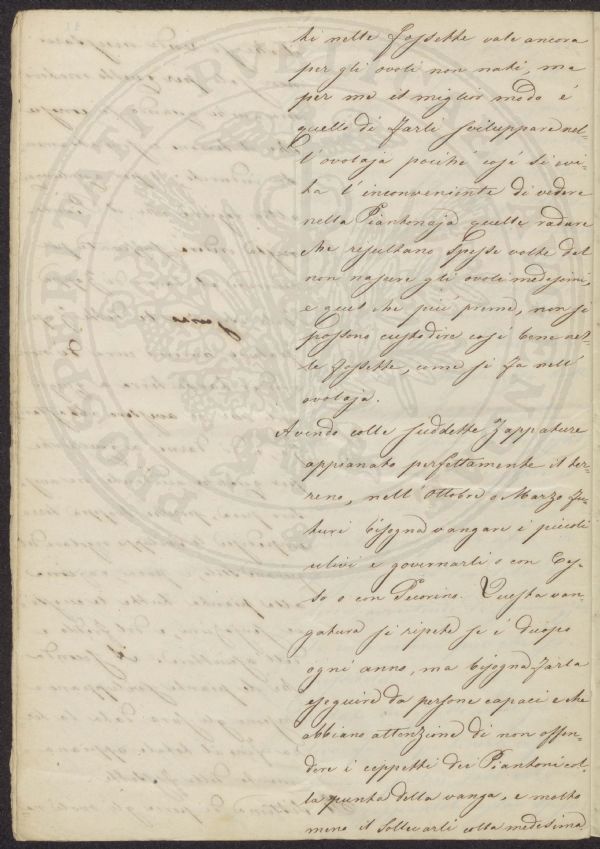 ti nelle fossette vale ancora
per gli ovoli non nati, ma
per me il miglior modo è
quello di farli sviluppare nel-
l'ovolaja poiché così si evi-
ta l'inconveniente di vedere
nella Piantonaja quelle radure
che resultano spesse volte dal
non nascere gli ovoli medesimi,
e quel che più preme, non si
possono custodire così bene nel-
le fossette, come si fa nell'
ovolaja.
Avendo colle suddette Zappature
appianato perfettamente il ter-
reno, nell'Ottobre o Marzo fu-
turi bisogna vangare i piccoli
ulivi e governarli o con
so o con Pecorino. Questa van-
gatura si ripete se è duopo
ogni anno, ma bisogna farla
eseguire da persone capaci e che
abbiano attenzione di non offen-
dere i ceppetti dei Piantoni col-
la punta della vanga, e molto
meno il sollevarli colla medesima
PROSPERITATI PUBLICAE